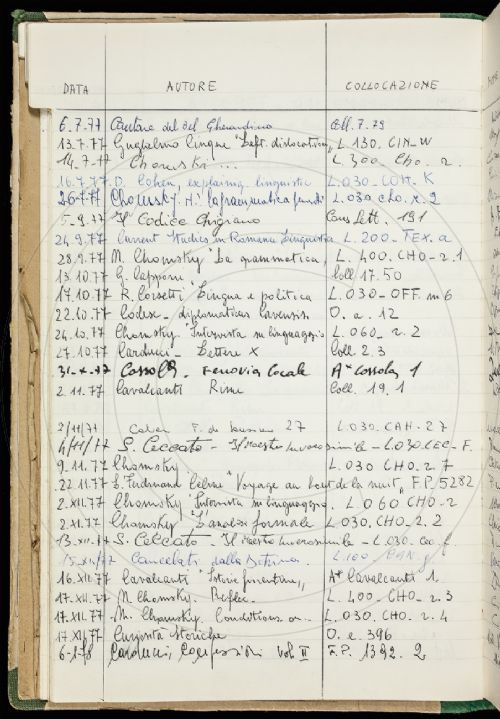 DATA AUTORE COLLOCAZIONE
6.7.77 Cantare del bel Gherardino Coll. 7.79
13.7.77 Guglielmo Cinque "Left dislocation, L. 130. CIN-W
14.7.77 Chomski ... L. 300. Cho. 2.
16.7.77 D. Cohen, explaining linguistic L.030_COH. K
26.7.77 Chomsky. N. La grammatica L.030.cho.r.2
5.9.77 Il Codice Chigiano Cons Lett. 191
24.9.77 Current Studies in Romance Linguistics L. 200_TEX. a
28.9.77 N. Chomsky "La grammatica, L. 400. CHO-2.1
13.10.77 G. Capponi Coll 17.50
17.10.77 R. Corsetti "Lingua e politica L. 030_OFF. m 6
22.10.77 Codex diplomaticus cavensis O. a. 12
24.10.77 Chomsky. "Intervista su linguaggio L. 060_ r. 2
27.10.77 Carducci - Lettere X Coll. 2.3
31.X.77 Cassola. Ferrovia locale Ax Cassola 1
2.11.77 Cavalcanti Rime Coll. 19.1
3/11/77 F. de Saussure 27 L.030. CAH. 27
4/11/77 S. Ceccato - Il Maestro inverosimile - L.030.CEC-F.
9.11.77 Chomsky L. 030 CHO. 2.7
22.11.77 L. Ferdinand Céline "Voyage au bout de la nuit" F.P. 5282
2.XII.77 Chomsky "Intervista su linguaggio. L. 060 CHO-2
2.XII.77 Chomsky "L'analisi formale L. 030. CHO. 2.2
13.XII.77 S. Ceccato - Il Maestro inverosimile - L.030.
15.XII.77 Cancelato dalla L. 100
16.XII.77 Cavalcanti "Istorie fiorentine,, Ax Cavalcanti 1.
17.XII.77 N. Chomsky. L. 400. CHO_ 2.3
17.XII.77 N. Chomsky. Conditions on.. L. 030. CHO. 2.4
17.XII.77 Curiosità storiche O. e. 396
6-1-78 Carducci, Confessioni vol. II F.P. 1392. 2